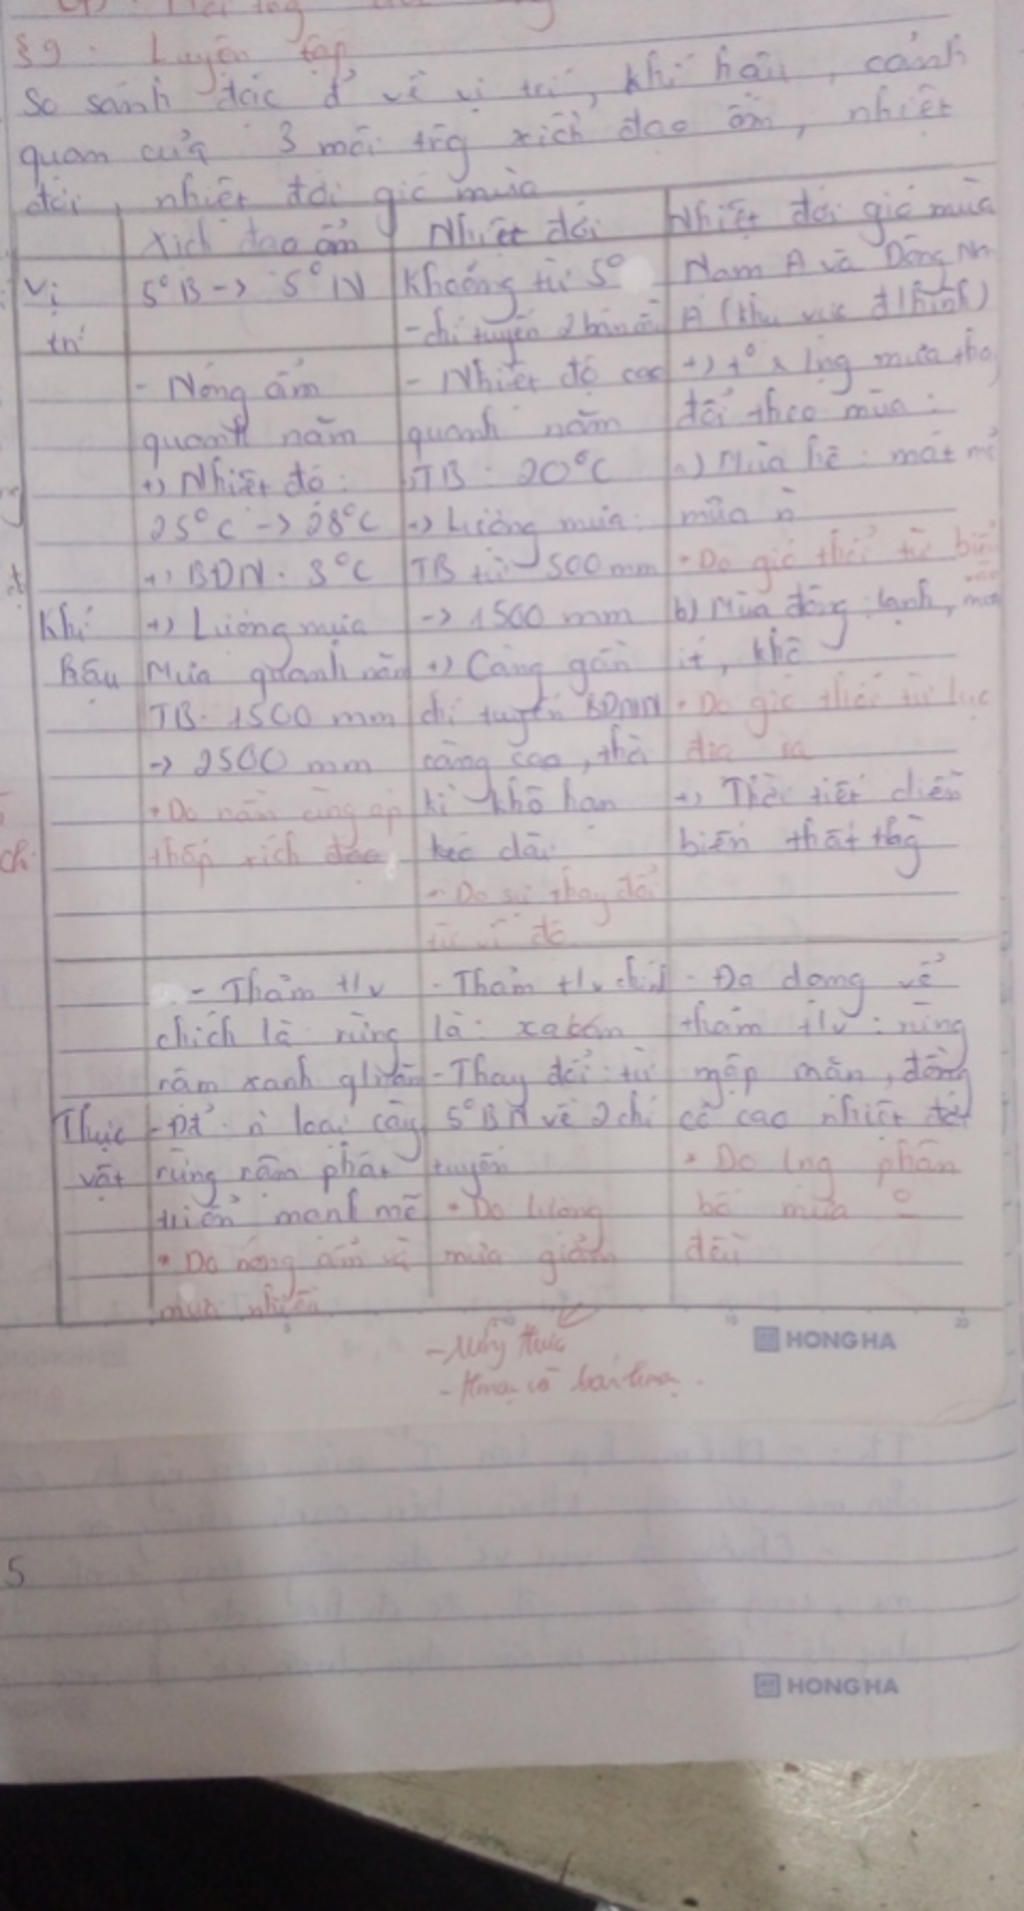 §9. Luyện tập
So sánh đặc đ² về vị trí, khí hậu, cảnh
quan của 3 môi trg xích đạo ẩm, nhiệt
đới, nhiệt đới gió mùa
Xích đạo ẩm
Nhiệt đới
Nhiệt đới gió mùa
Vị
trí
5°B -> 5°N
Khoảng từ 5°
- chí tuyến 2 bán cầu
Nam Á và Đông Nm
Á (khu vực đ/hình)
Khí
hậu
- Nóng ẩm
quanh năm
+) Nhiệt độ:
25°C -> 28°C
+) BĐN: 3°C
+) Lượng mưa
Mưa quanh năm
TB: 1500 mm
-> 2500 mm
• Do nằm cùng áp
thấp xích đạo
- Nhiệt độ cao
quanh năm
TB: 20°C
+) Lượng mưa:
TB từ 500 mm
-> 1500 mm
+) Càng gần
chí tuyến BĐNN
càng cao, thời
kì khô hạn
kéo dài
- Do sự thay đổi
từ vĩ độ
+) t° & lng mưa thay
đổi theo mùa:
a) Mùa hè: mát mẻ
mưa n
• Do gió thổi từ biển
b) Mùa đông: lạnh, mưa
ít, khô
• Do gió thổi từ lục
địa ra
+) Thời tiết diễn
biến thất thg
Thực
vật
- Thảm t/v
chích là rừng
rậm xanh q/năm
- Đ² n loại cây
rừng rậm phát
triển mạnh mẽ
• Do nóng ẩm và
mưa nhiều
- Thảm t/v chính
là: xa van
- Thay đổi: từ
5°BN về 2 chí
tuyến
• Do lượng
mưa giảm
- Đa dạng về
thảm t/v: rừng
ngập mặn, đồng
cỏ cao nhiệt đới
• Do lng phân
bố mưa
đều
HONG HA
5
HONG HA